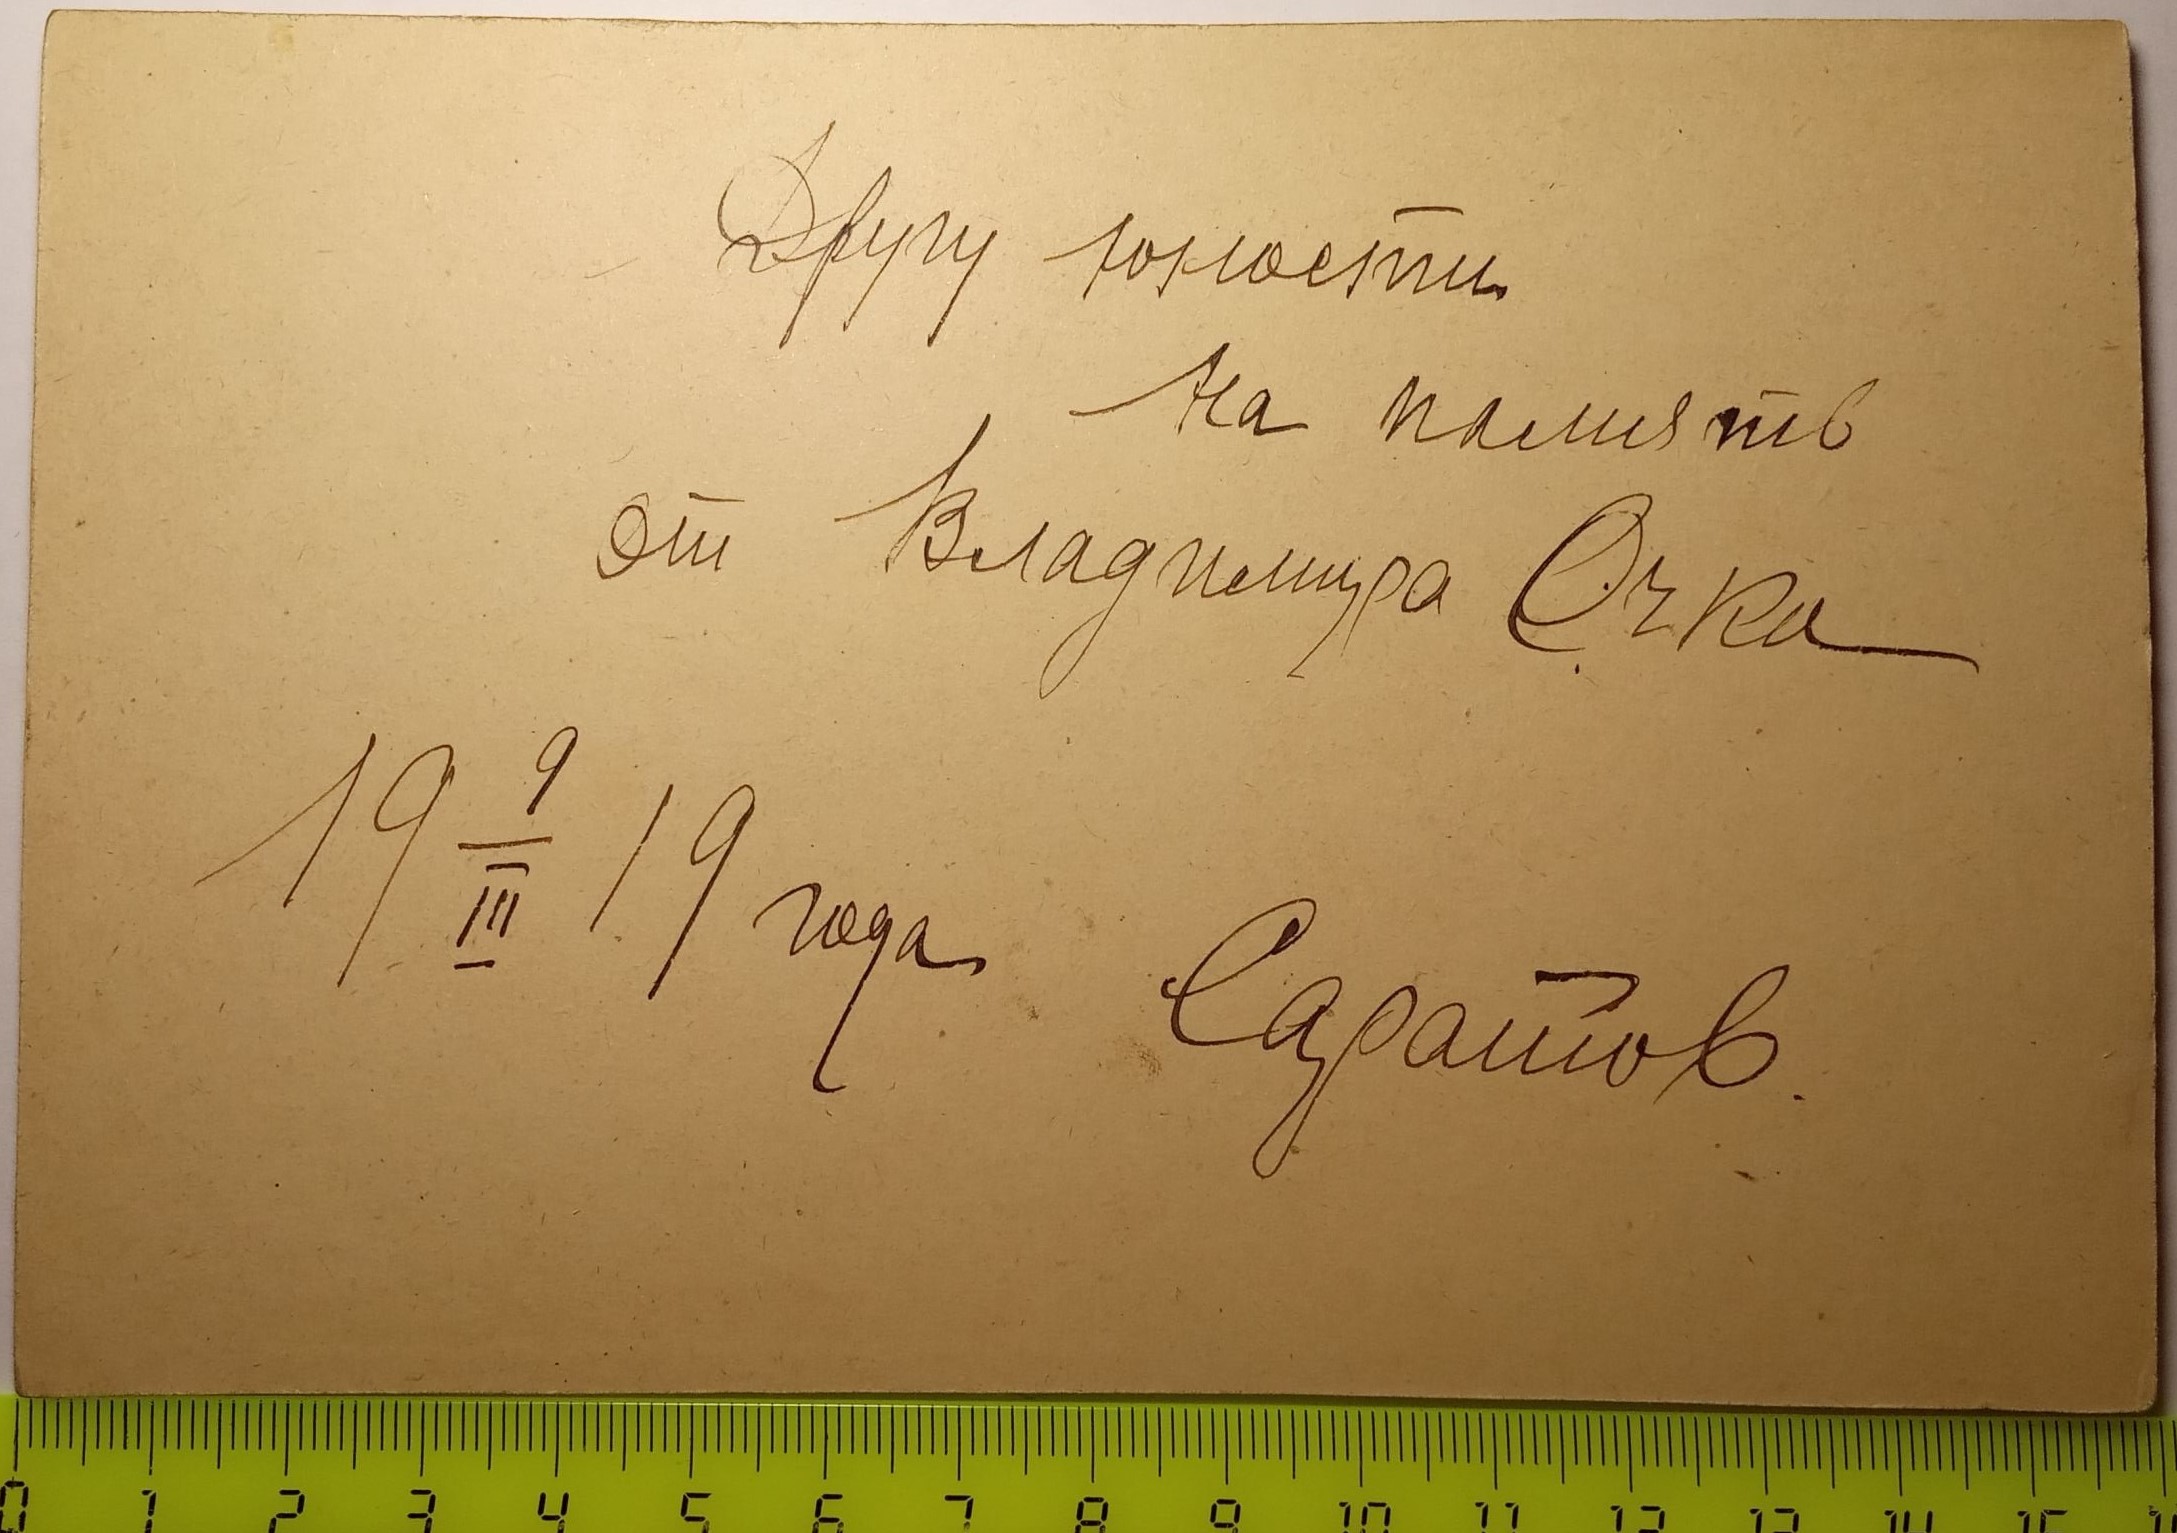 Другу юности
на память
от Владимира Очка
19 9/III 19 года
Саратов.
0 1 2 3 4 5 6 7 8 9 10 11 12 13 14 15